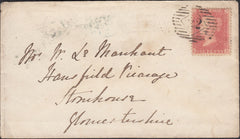 Mrs W. Le Marchant
Haresfield Vicarage
Stonehouse
Gloucestershire